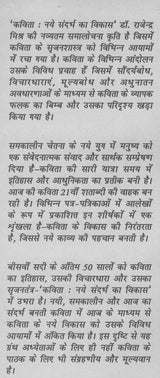 'कविता : नये संदर्भ का विकास' डॉ. राजेन्द्र
मिश्र की नव्यतम समालोचना कृति है जिसमें
कविता के सृजनशास्त्र को विभिन्न आयामों
में रचा गया है। कविता के विभिन्न आंदोलन
उसके विविध प्रवाह हैं जिसमें सौंदर्यबोध,
विचारधाराएं, मूल्यबोध और अधुनातन
अवधारणाओं के माध्यम से कविता के व्यापक
फलक का बिम्ब और उसका परिदृश्य खड़ा
किया गया है।
समकालीन चेतना के नये युग में मनुष्य को
एक संवेदनात्मक संवाद और सार्थक सम्प्रेषण
दिया है–कविता की सारी यात्रा समय में
इतिहास और आधुनिकता का प्रतीक बनी है।
आज की कविता 21वीं शताब्दी की वाहक बन
रही है। विभिन्न पत्र-पत्रिकाओं में आलेखों
के रूप में प्रकाशित इन शीर्षकों में एक
शृंखला है–कविता के विकास की निरंतरता
है, जिससे नये काव्य की पहचान बनती है।
बीसवीं सदी के अंतिम 50 सालों को कविता
का इतिहास, उसकी विचारधारा और उसका
सृजनतंत्र-'कविता : नये संदर्भ का विकास'
में उभरा है। नयी, समकालीन और आज का
संदर्भ बनती कविता में आज के माध्यम से
कविता के नये विकास को उसके विविध
आयामों में अंकित किया है। इस दृष्टि से यह
ग्रंथ अध्येताओं के लिए ही नहीं कविता के
पाठक के लिए भी संग्रहणीय और मूल्यवान
है।